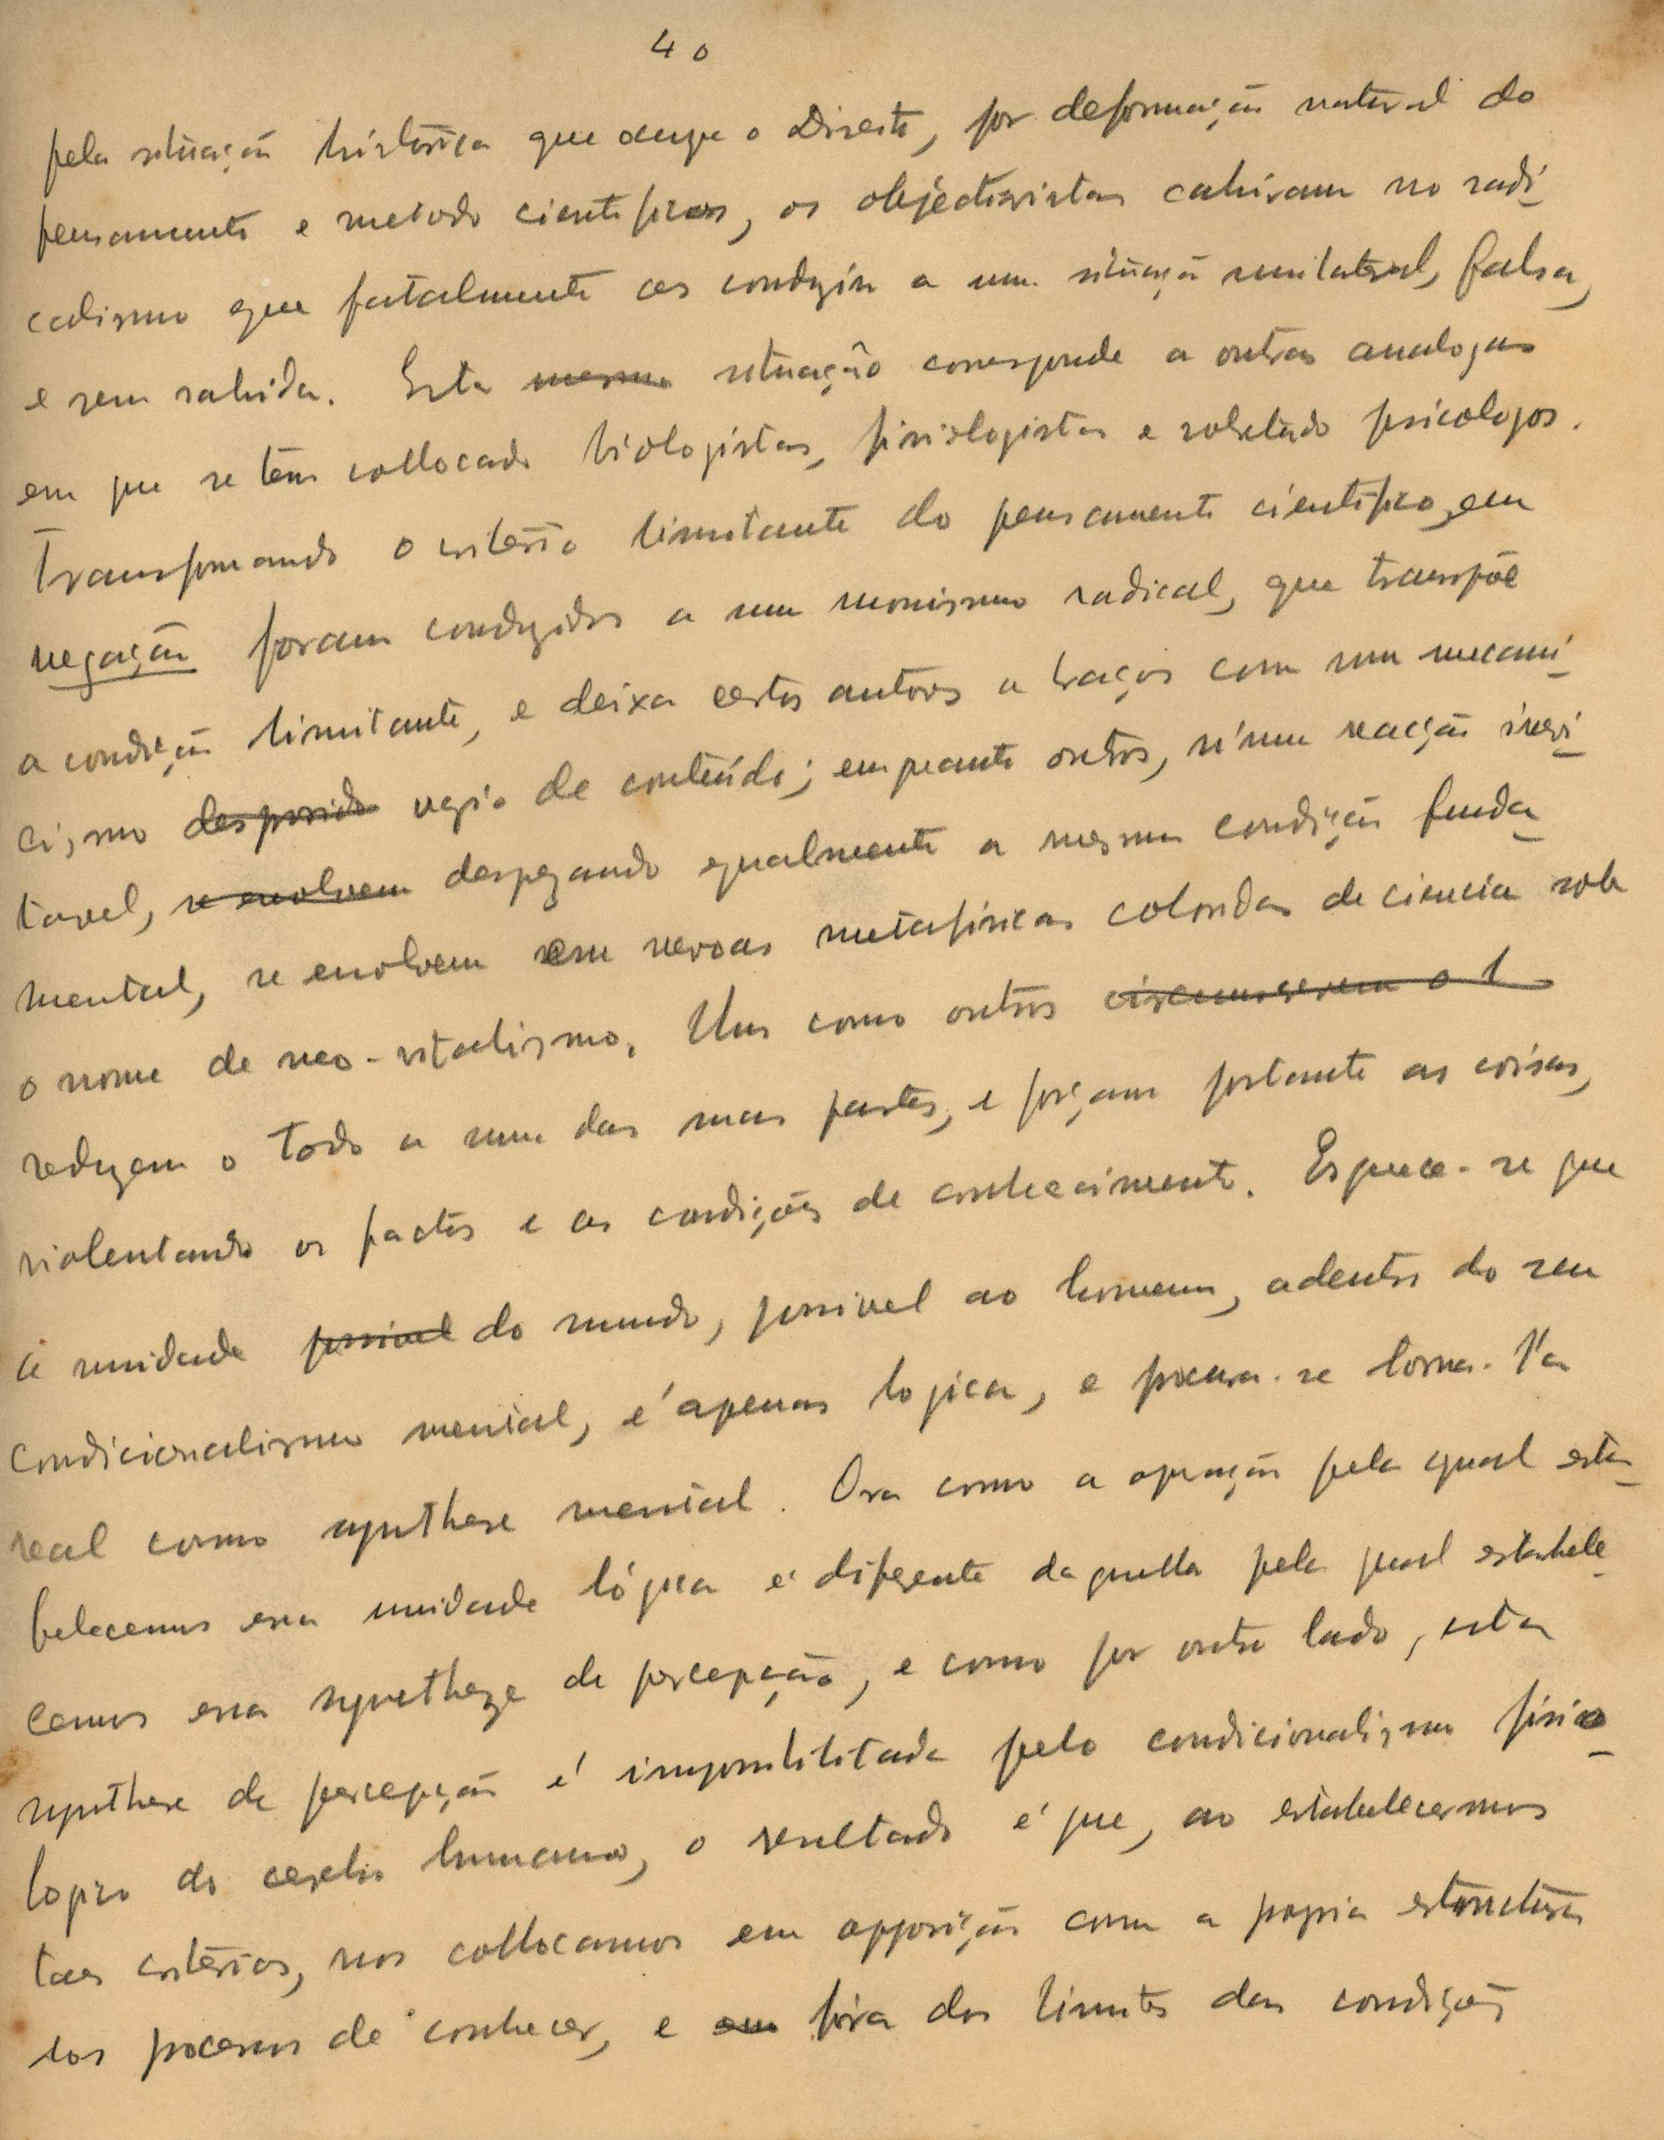 40
pela situação histórica que occupa o Direito, por deformação natural do
pensamento e metodo cientificos, os objectivistas cahiram no radi-
calismo que fatalmente os conduziu a uma situação unilateral, falsa,
e sem sahida. Esta mesma situação corresponde a outras analogas
em que se têm collocado biologistas, fisiologistas e sobretudo psicologos.
Transformando o criterio limitante do pensamento cientifico, em
negação foram conduzidos a um monismo radical, que transpõe
a condição limitante, e deixa certos autores a braços com um mecani-
cismo desprovido vazio de conteúdo; emquanto outros, n'uma reacção inevi-
tavel, se envolvem desprezando egualmente a mesma condição funda-
mental, se envolvem em nevoas metafisicas coloridas de ciencia sob
o nome de neo-vitalismo. Uns como outros
reduzem o todo a uma das suas partes, e forçam portanto as coisas,
violentando os factos e as condições de conhecimento. Esquece-se que
a unidade possivel do mundo, possivel ao homem, adentro do seu
condicionalismo mental, é apenas logica, e procura-se torna-l'a
real como synthese mental. Ora como a operação pela qual esta-
belecemos essa unidade lógica é diferente daquella pela qual estabele-
cemos essa synthese de percepção, e como por outro lado, esta
synthese de percepção é impossibilitada pelo condicionalismo fisio-
logico do cerebro humano, o resultado é que, ao estabelecermos
taes criterios, nos collocamos em opposição com a propria estructura
dos processos de conhecer, e em fóra dos limites das condições